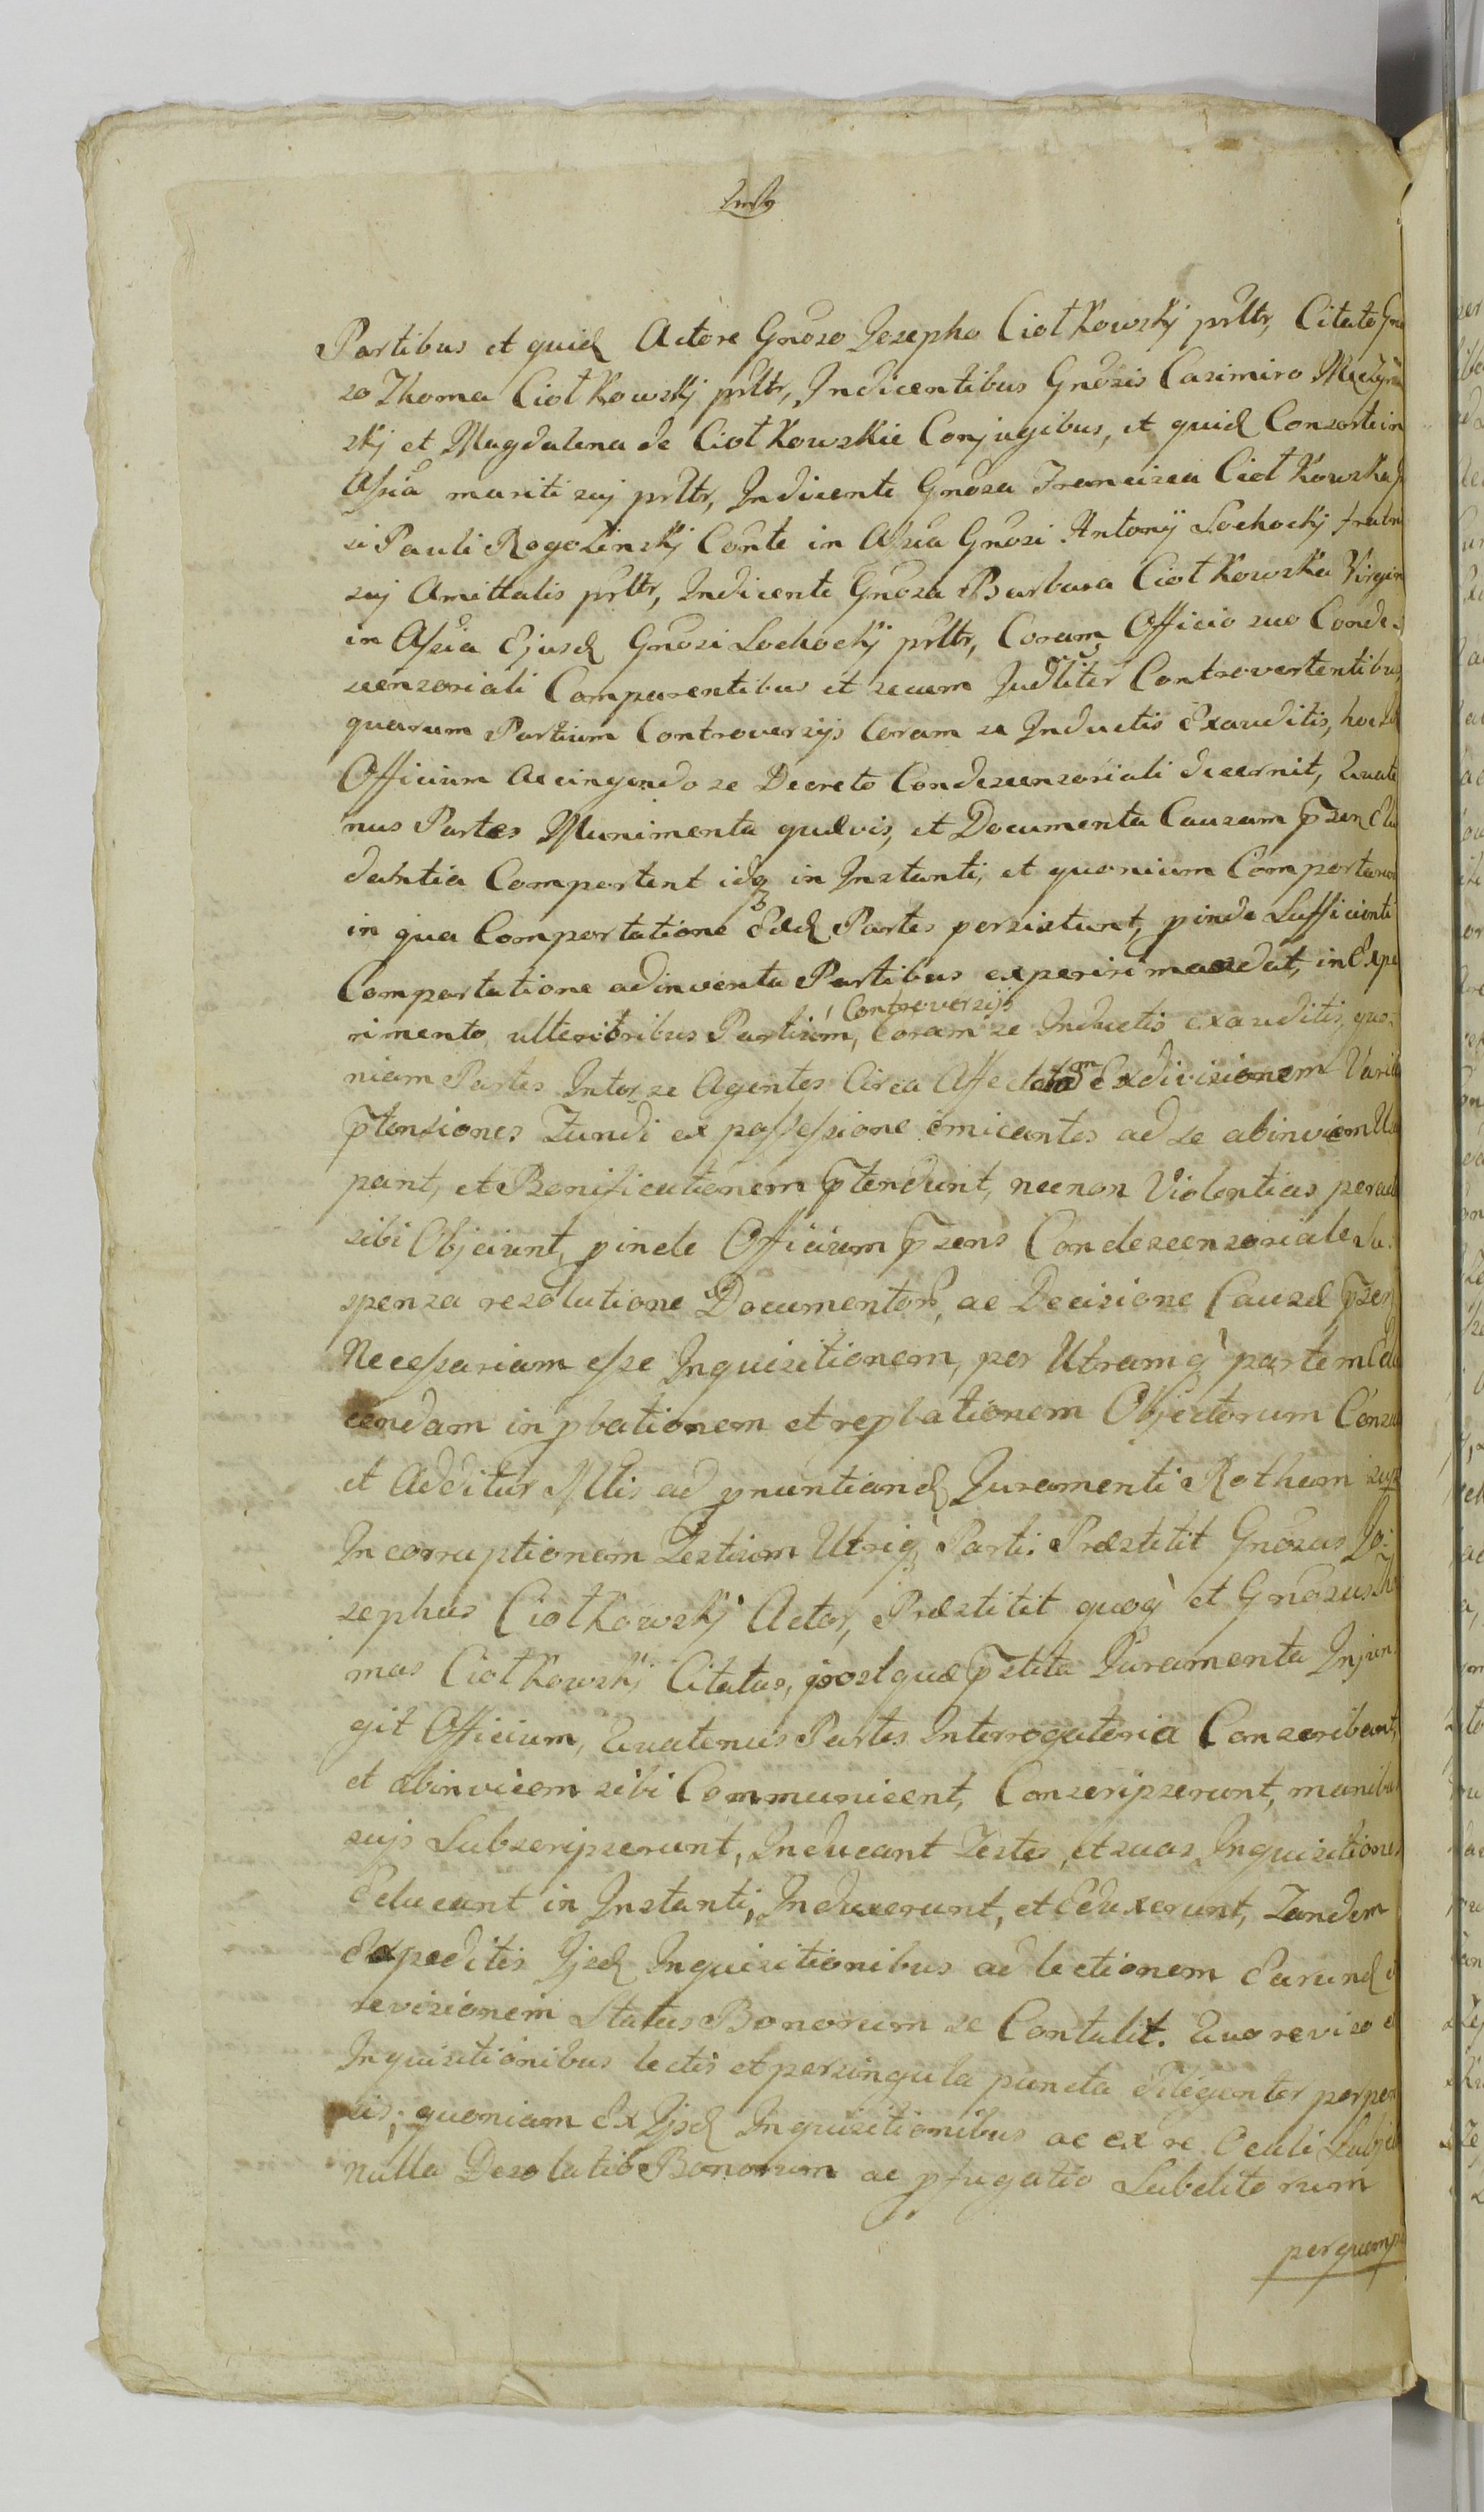 Partibus et quid Actore Gnoso Josepho Ciołkowskj prltr, Citato Gno
so Thoma Ciołkowskj prltr, Indicentibus Gnosis Casimiro
skj et Magdalena de Ciołkowskie Conjugibus, et quid Consorte in
Assia mariti suj prltr, Indicente Gnosa Francisca Ciołkowska
si Pauli Rogolinskj Conte in Assia Gnosi Antonij Lochockj fratris
suj Amittalis prltr, Indicente Gnosa Barbara Ciołkowska Virgin
in Assia Ejusd Gnosi Lochockj prltr, Coram Officio suo Conde-
scensoriali Comparentibus et secum Judliter Controvertentibus
quarum Partium Controversijs Coram se Inductis Exauditis, hoc
Officium Accingendo se Decreto Condescensoriali decernit, Quate
nus Partes Munimenta quævis, et Documenta Causam Pzen Elu
dantia Comportent idq in Instanti, et quoniam Comportarunt
in qua Comportatione Eæd Partes persistunt, pinde Sufficienti
Comportatione adinventa Partibus experiri mandat, in Expe
rimento ulterioribus Partium, Controversijs Coram se Inductis exauditis, quo-
niam Partes Inter se Agentes Circa Affectatam Exdivisionem Varias
Ptensiones Fundi ex possessione emicantes ad se abinvicem
pant, et Bonificationem Ptendunt, necnon Violentias peractas
sibi Objiciunt, pinde Officium Pzens Condescensoriale Su-
spensa resolutione Documentor, ac Decisione Causæ Pzen
Necessariam esse Inquisitionem, per Utramq partem Edu
cendam in pbationem et repbationem Objectorum Censet
et Additur Illis ad pnuntiand Juramenti Rotham sup
Incorruptionem Testium Utriq Parti. Præstitit Gnosus Jo-
sephus Ciołkowskj Actor, Præstitit quoq et Gnosus Tho
mas Ciołkowskj Citatus, postquæ Pstita Juramenta Injun
git Officium, Quatenus Partes Interrogatoria Conscribant,
et abinvicem sibi Communicent, Conscripserunt, manibus
sujs Subscripserunt, Inducant Testes, et suas Inquisitiones
Educant in Instanti, Induxerunt, et Eduxerunt, Tandem
Expeditis Ijsd Inquisitionibus ad lectionem Earund et
revisionem Status Bonorum se Contulit. Quo reviso et
Inquisitionibus lectis et per singula puncta diligenter perpen
sis; quoniam Ex Ijsd Inquisitionibus ac ex re Oculi Subjecta
nulla Desolatio Bonorum ac pfugatio Subditorum
per quem